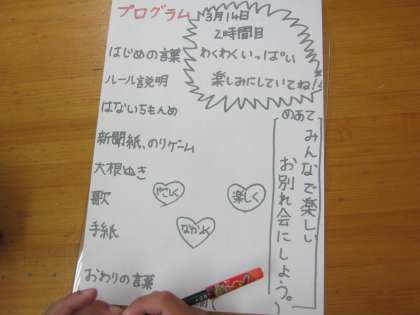 プログラム
3月14日
2時間目
わくわくいっぱい
楽しみにしていてね!
はじめの言葉
ルール説明
はないちもんめ
新聞紙、のりゲーム
大根ぬき
歌
手紙
おわりの言葉
楽しく
なかよく
めあて
みんなで楽しい
お別れ会にしよう。